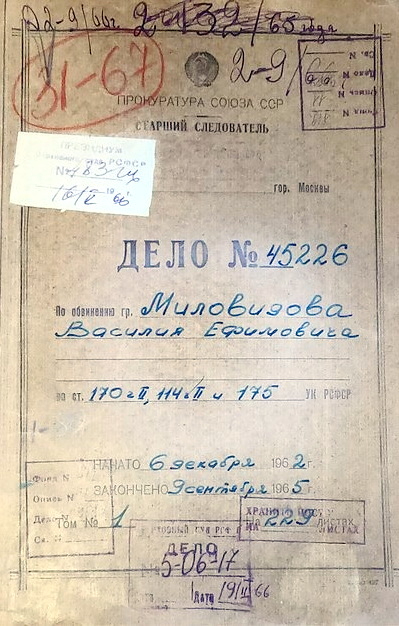 2-9/66г. 2-132/65 года
31-67
2-9/66
ПРОКУРАТУРА СОЮЗА ССР
СТАРШИЙ СЛЕДОВАТЕЛЬ
ПРЕЗИДИУМ
РСФСР
16/V 1966
гор. Москвы
ДЕЛО № 45226
По обвинению гр. Миловидова
Василия Ефимовича
по ст. 170 ч II, 114 ч II и 175 УК РСФСР
НАЧАТО 6 декабря 1962 г.
ЗАКОНЧЕНО 9 сентября 1965 г.
Фонд №
Опись №
Дело №
Св. №
Том № 1
На 229 листах
ХРАНИТЬ
ЛИСТАХ
ДЕЛО
5-06-17
Дата 19/II 66